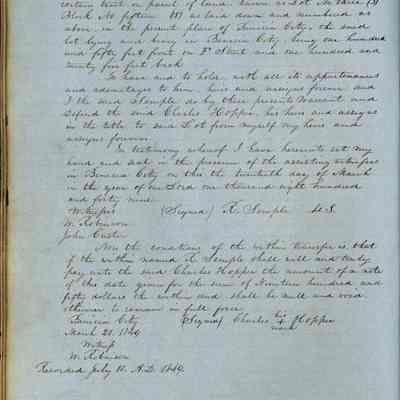 certain tract or parcel of land, known as Lot No three (3)
Block No fifteen (15) as laid down and numbered as
above in the present plan of Benicia City, the said
lot lying and being in Benicia City, being one hundred
and fifty feet front on Street and one hundred and
twenty five feet back
To have and to hold, with all its appurtenances
and advantages to him, heirs and assigns forever and
I the said Semple do by these presents Warrant and
Defend the said Charles Hopper, his heirs and assigns
in the title to said Lot from myself my heirs and
assigns forever.
In testimony whereof I have hereunto set my
hand and seal in the presence of the assisting witnesses
in Benicia City on this the twentieth day of March
in the year of our Lord one thousand eight hundred
and forty nine.
Witness (Signed) R. Semple L.S.
W. Robinson
John Custer
Now the condition of the within transfer is, that
if the within named R. Semple shall well and truly
pay unto the said Charles Hopper the amount of a note
of this date given for the sum of Nineteen hundred and
fifty dollars the within deed shall be null and void
otherwise to remain in full force.
Benicia City (Signed) Charles his x mark Hopper
March 20. 1849
Witness
W. Robinson
Recorded July 10. A.D. 1849.